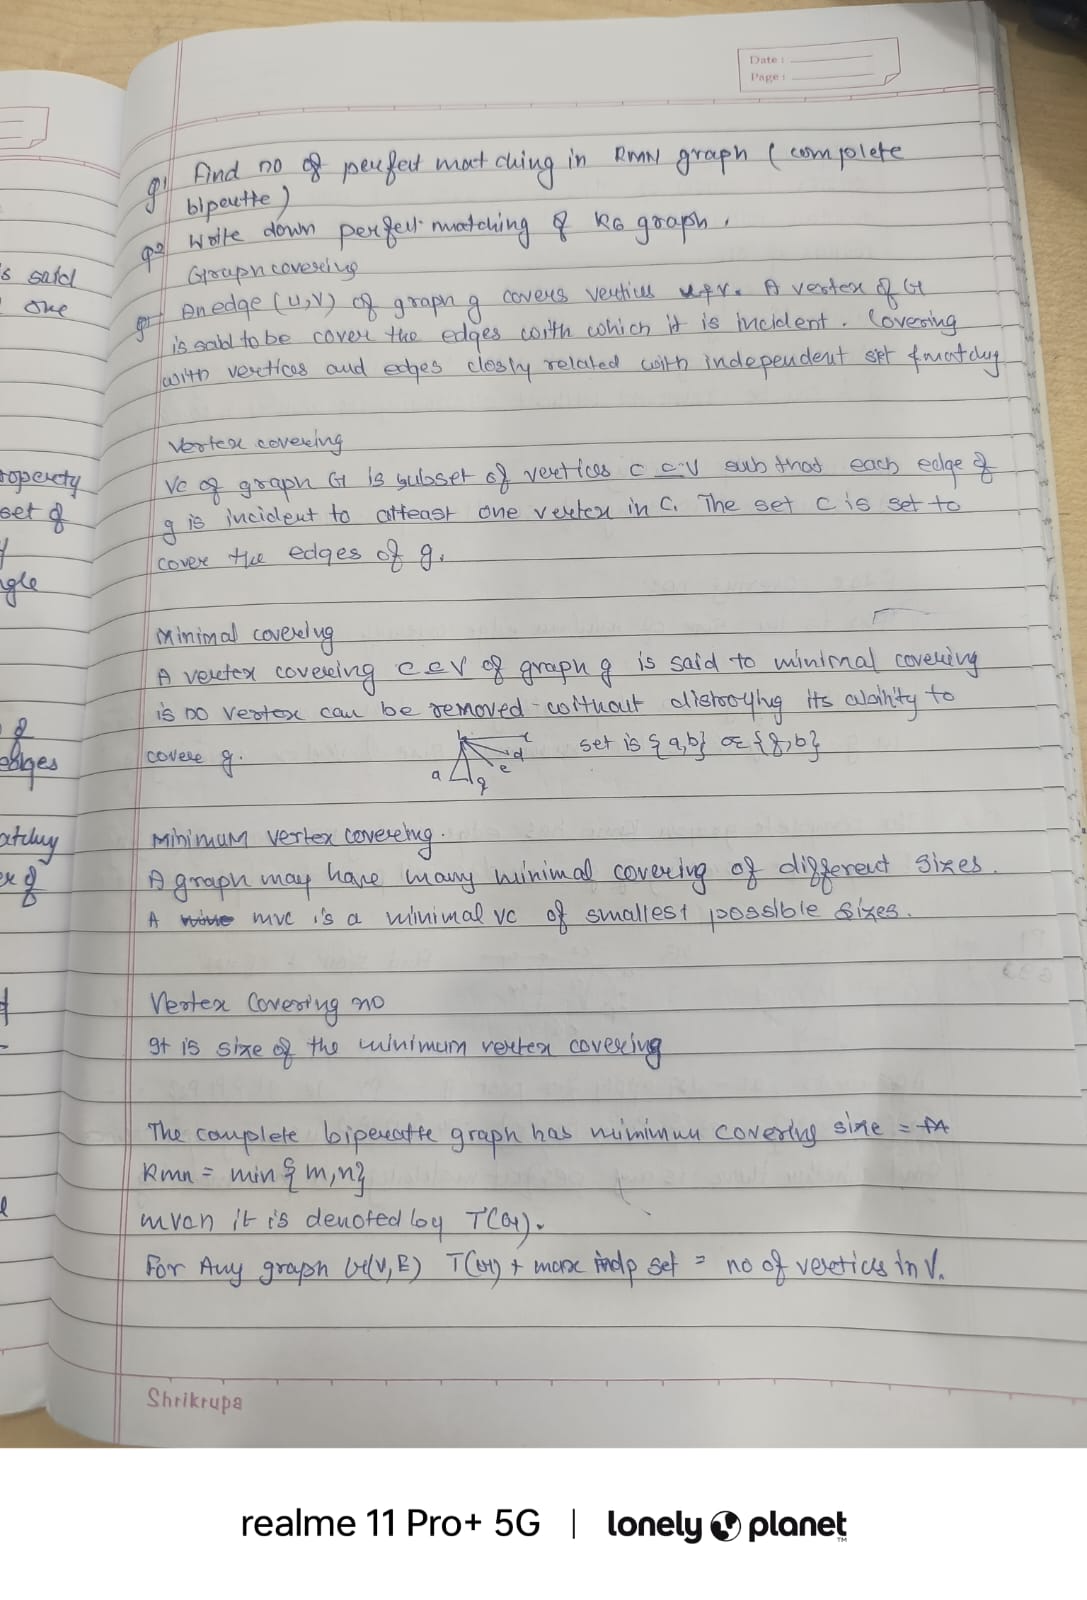 Date :
Page :
s said
one
roperty
set of
gle
of
edges
Q1 Find no of perfect matching in RMN graph ( complete
bipertte )
Q2 Write down perfect matching of K6 graph .
Graph covering
An edge (u,v) of graph g covers vertices u & v. A vertex of G
is said to be cover the edges with which it is incident . Covering
with vertices and edges closly related with independent set & matchig
Vertex covering
VC of graph G is subset of vertices C ⊆ V sub that each edge of
g is incident to atleast one vertex in C. The set C is set to
cover the edges of g.
Minimal coverivg
A vertex covering C ⊆ V of graph g is said to minimal covering
is no vertex can be removed without distroying its ability to
cover g.
b c d e a g
set is {a,b} or {g,b}
Minimum vertex covering.
A graph may have many minimal covering of different sizes.
A mvc is a minimal vc of smallest possible sizes.
Vertex Covering no
It is size of the minimum vertex covering
The complete biperatte graph has minimun covering size =
Kmn = min { m,n}
mvcn it is denoted by T(G).
For Any graph G(V,E) T(G) + max indp set = no of vertices in V.
Shrikrupa
realme 11 Pro+ 5G | lonely planet